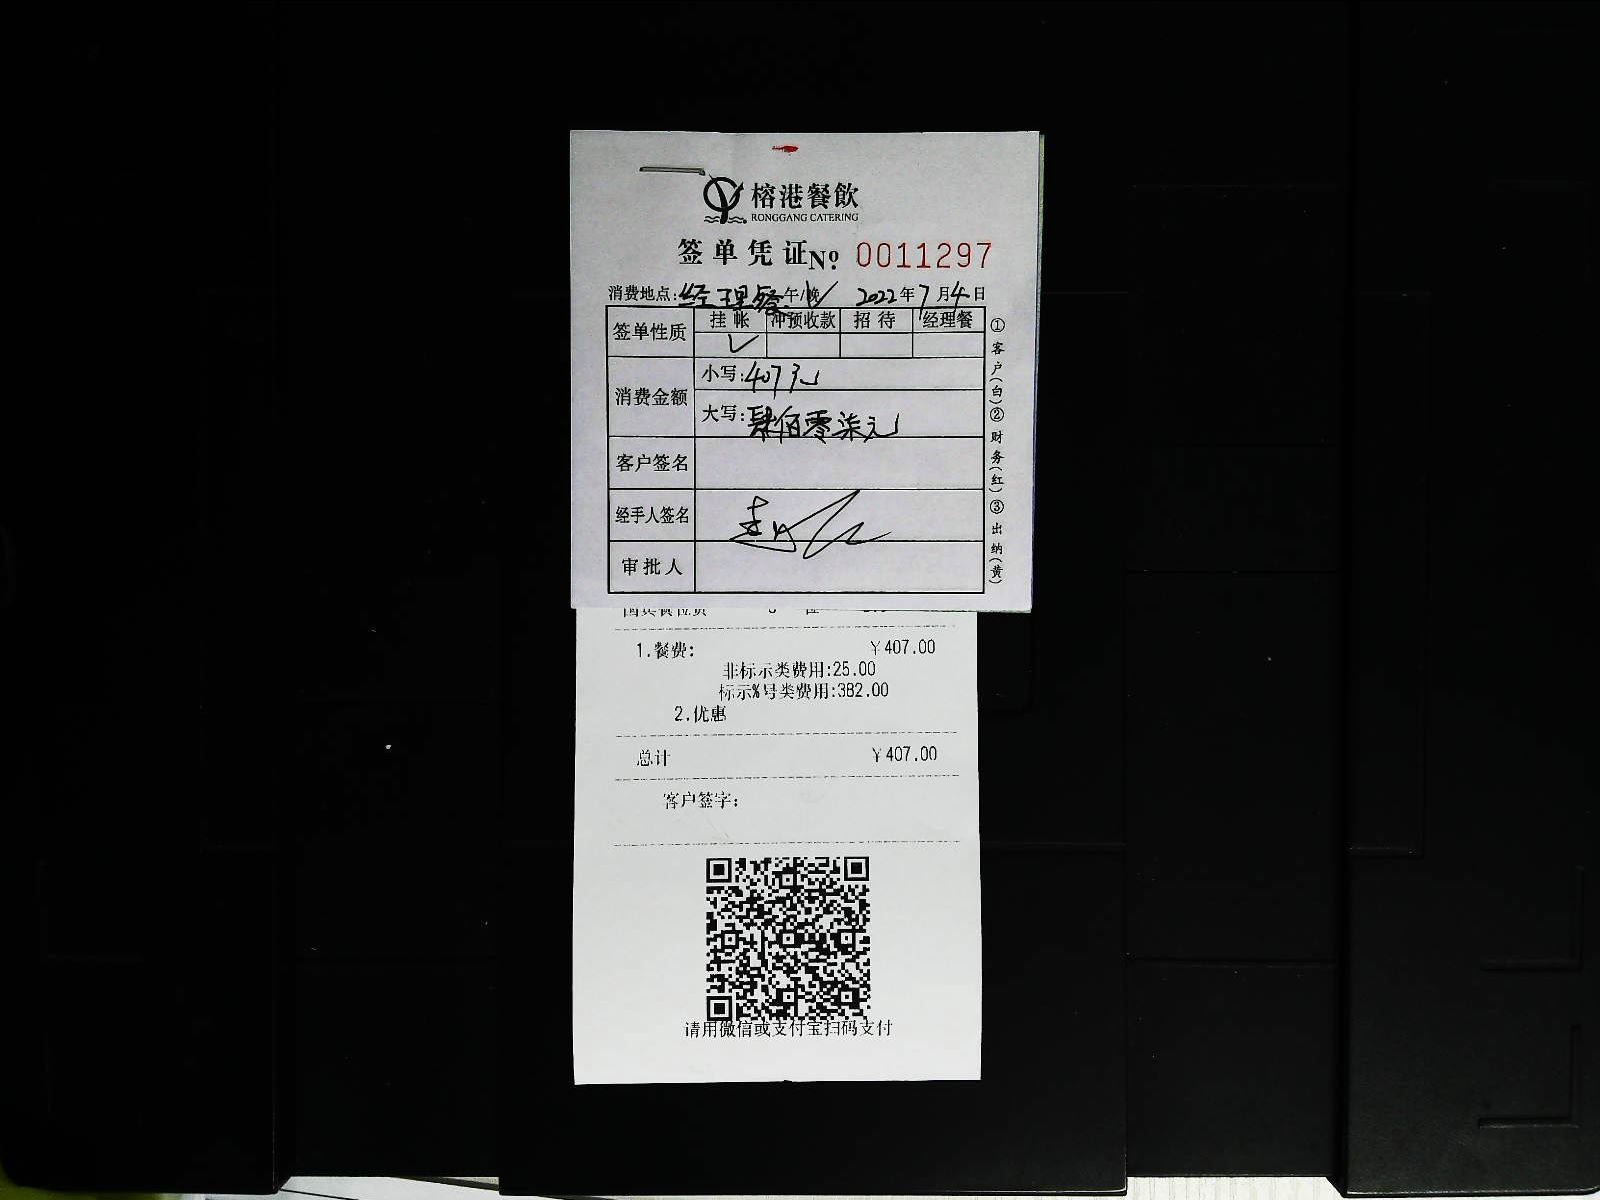 榕港餐飲
RONGGANG CATERING
签单凭证 No 0011297
消费地点:经理餐 午/晚 2022年7月4日
签单性质 挂帐 冲预收款 招待 经理餐
✓
消费金额 小写:407元
大写:肆佰零柒元
客户签名
经手人签名
审批人
①客户(白)②财务(红)③出纳(黄)
1.餐费: ¥407.00
非标示类费用:25.00
标示%号类费用:382.00
2.优惠
总计 ¥407.00
客户签字:
请用微信或支付宝扫码支付